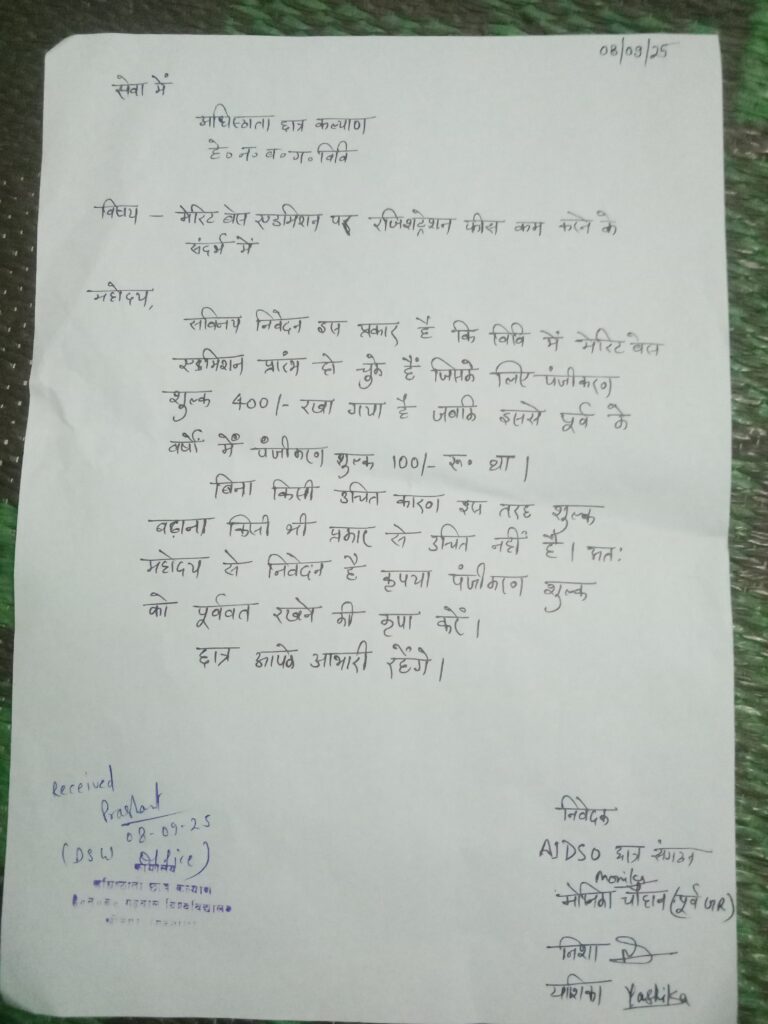 08/09/25
सेवा में
अधिष्ठाता छात्र कल्याण
हे॰ न॰ ब॰ ग॰ विवि
विषय - मेरिट बेस एडमिशन पर रजिशट्रेशन फीस कम करने के
संदर्भ में
महोदय,
सविनय निवेदन इस प्रकार है कि विवि में मेरिट बेस
एडमिशन प्रारंभ हो चुके हैं जिसके लिए पंजीकरण
शुल्क 400/- रखा गया है जबकि इससे पूर्व के
वर्षों में पंजीकरण शुल्क 100/- रू॰ था।
बिना किसी उचित कारण इस तरह शुल्क
बढ़ाना किसी भी प्रकार से उचित नहीं है। अतः
महोदय से निवेदन है कृपया पंजीकरण शुल्क
को पूर्ववत रखने की कृपा करें।
छात्र आपके आभारी रहेंगे।
Received
Prashant
08-09-25
(DSW Office)
कार्यालय
अधिष्ठाता छात्र कल्याण
हे.न.ब. गढ़वाल विश्वविद्यालय
निवेदक
AIDSO छात्र संगठन
Monika
मोनिका चौहान (पूर्व UR)
निशा
याशिका Yashika